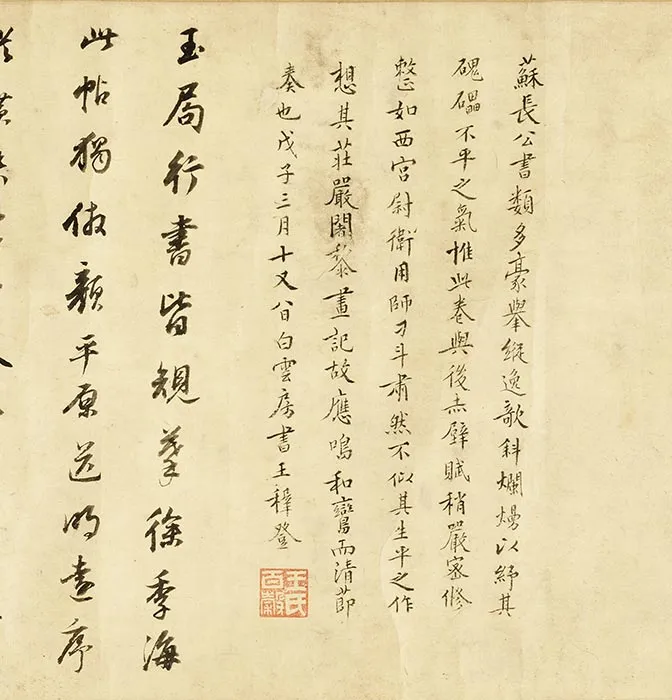 蘇長公書類多豪舉縱逸欹斜爛熳以紓其
磈礧不平之氣惟此卷與後赤壁賦稍嚴密修
整如西宮尉衛用師刁斗肅然不似其生平之作
想其莊嚴闍黎畫記故應鳴和鸞而清節
奏也戊子三月十又八日白雲房書王穉登
王氏百穀
玉局行書皆規摹徐季海
此帖獨倣顏平原送明遠序